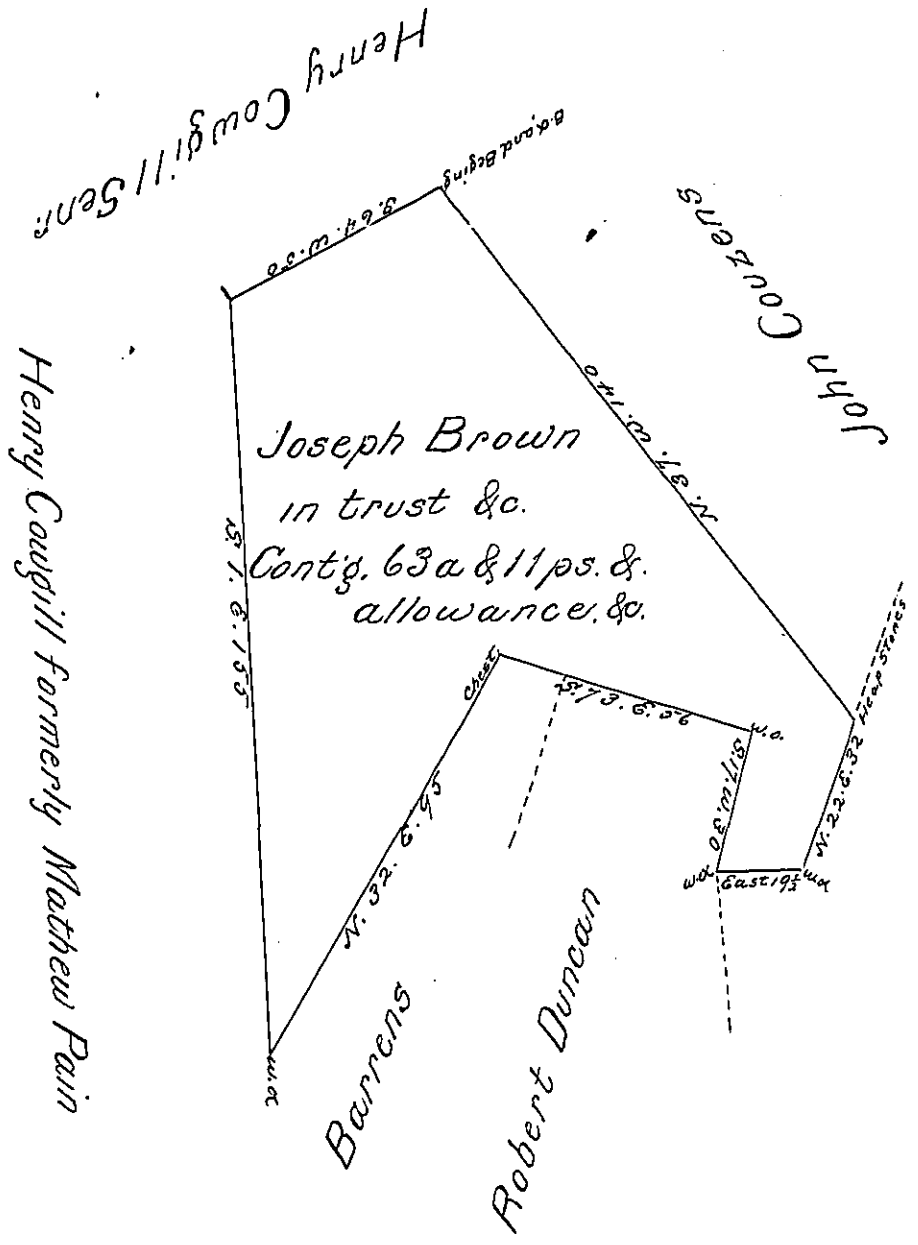 Henry Cowgill Senr.
B.o, and Begining
John Couzens
S. 64. W. 50
N. 37. W. 140
Joseph Brown
in trust &c.
Cont'g. 63a & 11 ps. &.
allowance. &c.
S. 1. E. 155
Henry Cowgill formerly Mathew Pain
Chest.
S. 73. E. 56
w.o.
Heap Stones
S. 17. W. 30
N. 22. E. 32
w.o
East 19½
w.o
N. 32. E. 95
w.o
Barrens
Robert Duncan